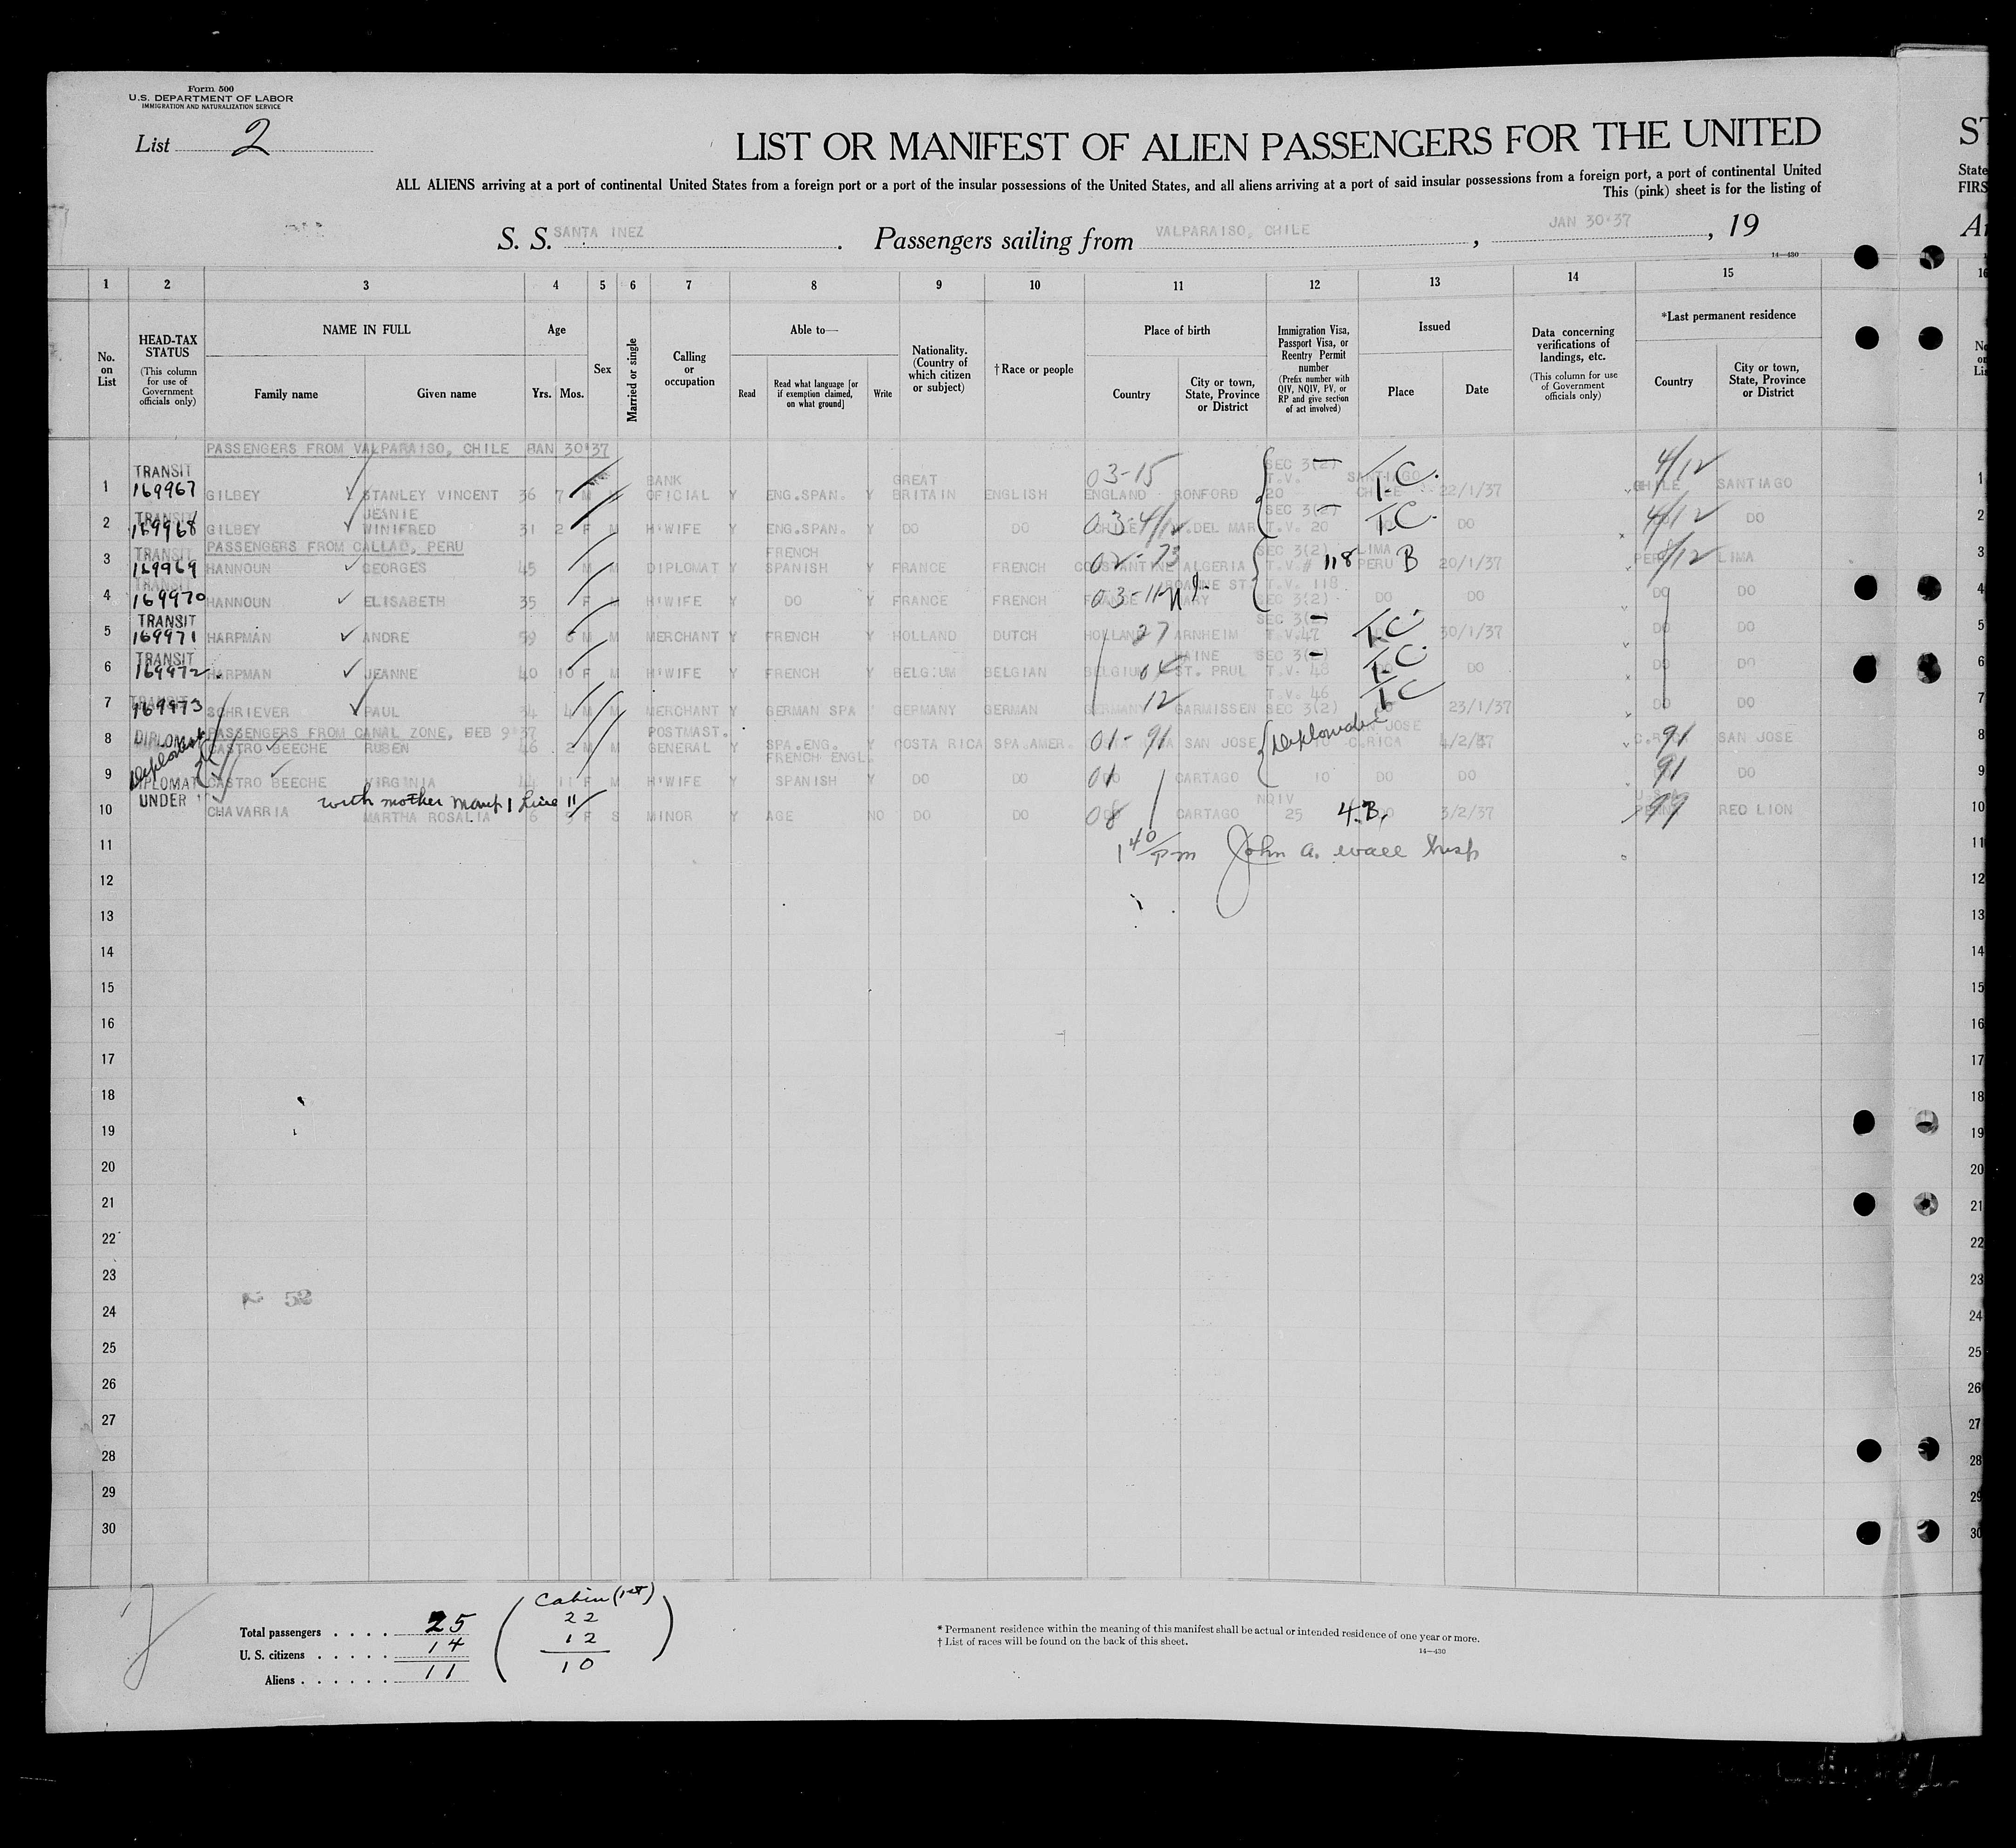 Form 500
U.S. DEPARTMENT OF LABOR
IMMIGRATION AND NATURALIZATION SERVICE
List 2
LIST OR MANIFEST OF ALIEN PASSENGERS FOR THE UNITED
ST
ALL ALIENS arriving at a port of continental United States from a foreign port or a port of the insular possessions of the United States, and all aliens arriving at a port of said insular possessions from a foreign port, a port of continental United
State
This (pink) sheet is for the listing of
FIRS
S. S. SANTA INEZ. Passengers sailing from VALPARAISO, CHILE, JAN 30'37, 19
14—430
1 2 3 4 5 6 7 8 9 10 11 12 13 14 15 16
No. on List
HEAD-TAX STATUS (This column for use of Government officials only)
NAME IN FULL
Family name
Given name
Age
Yrs.
Mos.
Sex
Married or single
Calling or occupation
Able to—
Read
Read what language [or if exemption claimed, on what ground]
Write
Nationality. (Country of which citizen or subject)
†Race or people
Place of birth
Country
City or town, State, Province or District
Immigration Visa, Passport Visa, or Reentry Permit number (Prefix number with QIV, NQIV, PV, or RP and give section of act involved)
Issued
Place
Date
Data concerning verifications of landings, etc. (This column for use of Government officials only)
*Last permanent residence
Country
City or town, State, Province or District
PASSENGERS FROM VALPARAISO, CHILE JAN 30'37
1 TRANSIT 169967 GILBEY STANLEY VINCENT 36 7 M BANK OFICIAL Y ENG.SPAN. Y GREAT BRITAIN ENGLISH 03-15 ENGLAND RONFORD SEC 3(2) T.V. 20 SANTIAGO CHILE T.C. 22/1/37 4/12 CHILE SANTIAGO
2 TRANSIT 169968 GILBEY JEANIE WINIFRED 31 2 F M H'WIFE Y ENG.SPAN. Y DO DO 03-4/12 CHILE DEL MAR SEC 3(2) T.V. 20 T.C. DO 4/12 DO
PASSENGERS FROM CALLAO, PERU
3 TRANSIT 169969 HANNOUN GEORGES 45 M M DIPLOMAT Y FRENCH SPANISH Y FRANCE FRENCH 02-73 CONSTANTINE ALGERIA SEC 3(2) T.V.# 118 LIMA PERU B 20/1/37 PERU LIMA
4 TRANSIT 169970 HANNOUN ELISABETH 35 F M H'WIFE Y DO Y FRANCE FRENCH 03-11 FRANCE T.V. 118 SEC 3(2) DO DO DO DO
5 TRANSIT 169971 HARPMAN ANDRE 59 6 M M MERCHANT Y FRENCH Y HOLLAND DUTCH HOLLAND 27 ARNHEIM SEC 3(2) T.V.47 T.C. 30/1/37 DO DO
6 TRANSIT 169972 HARPMAN JEANNE 40 10 F M H'WIFE Y FRENCH Y BELGIUM BELGIAN BELGIUM 04 ST. PRUL SEC 3(2) T.V. 48 T.C. DO DO DO
7 TRANSIT 169973 SCHRIEVER PAUL 34 4 M M MERCHANT Y GERMAN SPA Y GERMANY GERMAN GERMANY 12 GARMISSEN T.V. 46 SEC 3(2) T.C 23/1/37 DO DO
PASSENGERS FROM CANAL ZONE, FEB 9'37
8 DIPLOMAT CASTRO BEECHE RUBEN 46 2 M M POSTMAST. GENERAL Y SPA.ENG. FRENCH Y COSTA RICA SPA.AMER. 01-91 SAN JOSE Diplomatic SAN JOSE C.RICA 4/2/37 C.RICA 91 SAN JOSE
9 DIPLOMAT CASTRO BEECHE VIRGINIA 44 11 F M H'WIFE Y ENGL. SPANISH Y DO DO 01 DO CARTAGO 10 DO DO 91 DO
10 UNDER CHAVARRIA with mother Manf 1 Line 11 MARTHA ROSALIA 6 5 F S MINOR Y AGE NO DO DO 08 CARTAGO NQIV 25 4.B. DO 3/2/37 U.S.A. PENN 99 RED LION
11 1 40/pm John A. Wall Insp
12
13
14
15
16
17
18
19
20
21
22
23
24
25
26
27
28
29
30
52
Total passengers . . . . 25
U. S. citizens . . . . . 14
Aliens . . . . . . 11
Cabin (1st)
22
12
10
* Permanent residence within the meaning of this manifest shall be actual or intended residence of one year or more.
† List of races will be found on the back of this sheet.
14—430